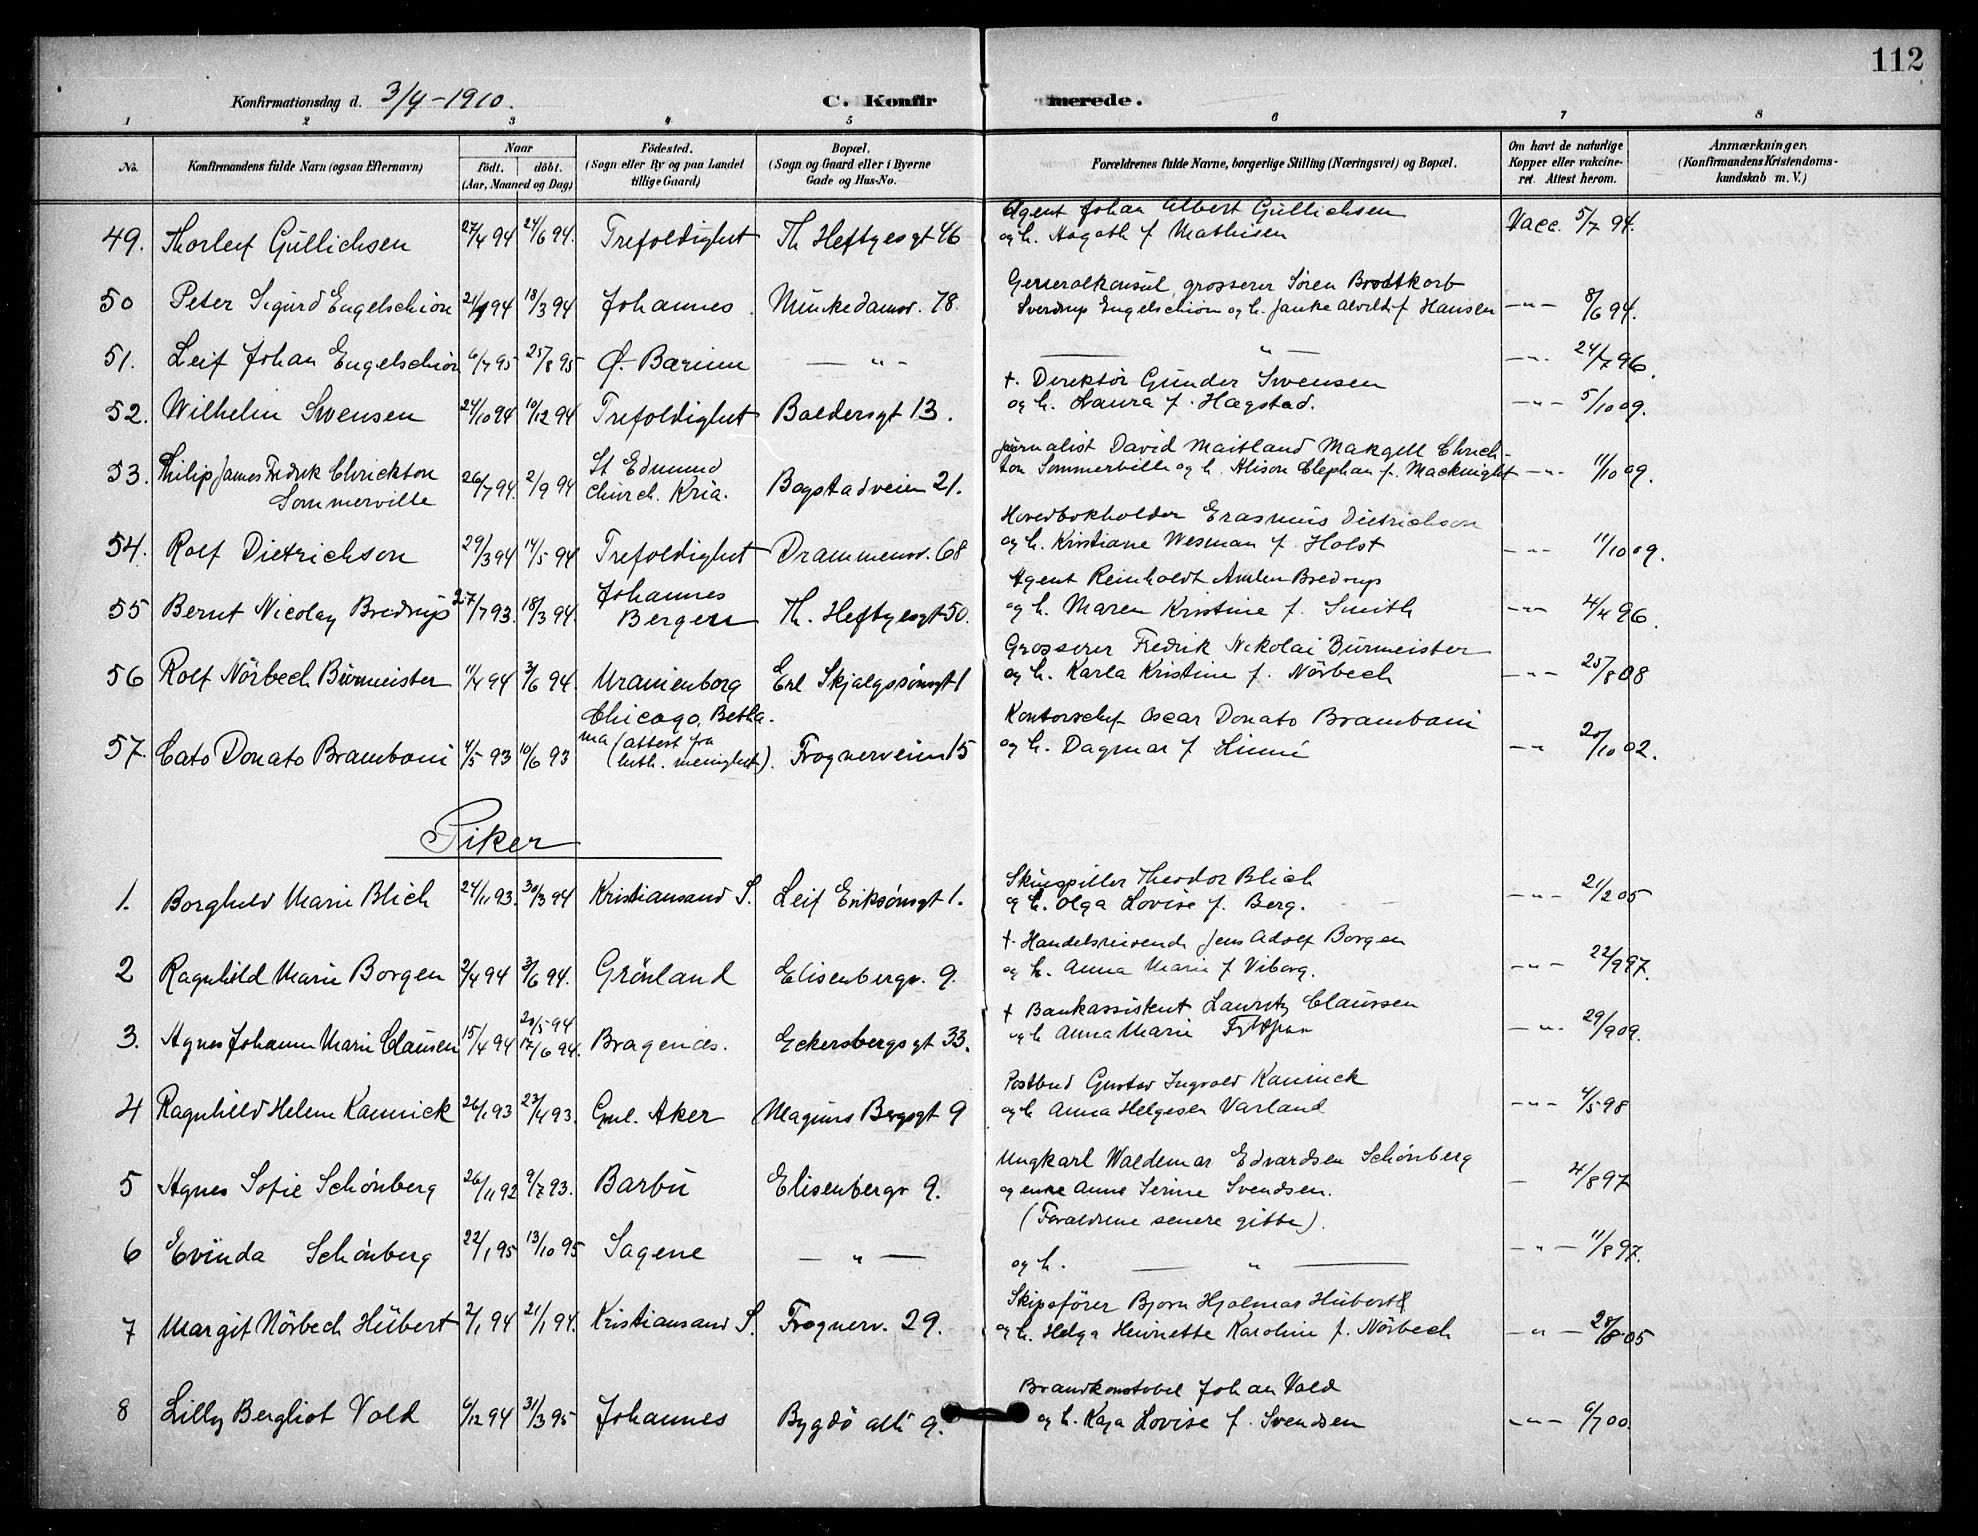 112
Konfirmationsdag d. 3/4-1910. C. Konfirmerede.
1 2 3 4 5 6 7 8
No. Konfirmandens fulde Navn (ogsaa Efternavn) Naar født. døbt. (Aar, Maaned og Dag) Fødested. (Sogn eller By og paa Landet tillige Gaard) Bopæl. (Sogn og Gaard eller i Byerne Gade og Hus-No. Forældrenes fulde Navne, borgerlige Stilling (Næringsvei) og Bopæl. Om havt de naturlige Kopper eller vakcineret. Attest herom. Anmærkninger. (Konfirmandens Kristendomskundskab m. V.)
49. Thorleif Gullichsen 27/4 94 24/6 94. Trefoldighet Th. Heftyesgt 46 Agent Johan Albert Gullichsen
og h. Hagoth f Mathisen Vacc. 5/7 94.
50 Peter Sigurd Engelschiøn 18/3 94 Johannes Munkedamsv. 78. Generalkonsul, grosserer Søren Brodtkorb
Sverdrup Engelschiøn og h. Janke Alvilde f Hansen — " — 8/6 94.
51. Leif Johan Engelschiøn 6/7 95 25/8 95 Ø. Bærum — " — — " — — " — 24/7 96.
52. Wilhelm Swensen 24/10 94 10/12 94 Trefoldighet Baldersgt 13. †. Direktør Gunder Swensen
og h. Laura f. Hagstad. — " — 5/10 09.
53. Philip James Fredrik Chrickton
Sommerville 26/7 94. 2/9 94 St Edmund
church. Kria. Bogstadveien 21. Journalist David Maitland Makgill Chrich-
ton Sommerville og h. Alison Clephan f. Macknight — " — 11/10 09.
54. Rolf Dietrichson 29/3 94 14/5 94 Trefoldighet Drammensv. 68 Hovedbokholder Erasmus Dietrichson
og h. Kristiane Wesman f. Holst — " — 11/10 09.
55 Bernt Nicolay Bredrup 27/7 93. 18/3 94. Johannes
Bergen Th. Heftyesgt 50. Agent Reinholdt Bredrup
og h. Maren Kristine f. Smith — " — 4/4 96.
56 Rolf Nörbech Burmeister 11/4 94 3/6 94. Uranienborg Erl Skjalgssønsgt 1 Grosserer Fredrik Nikolai Burmeister
og h. Karla Kristine f. Nörbech — " — 25/8 08
57. Cato Donato Bramboni 4/5 93 10/6 93 Chicago, Betha-
ma (attest fra
luth. menighet). Frognerveien 15 Kontorschef Oscar Donato Bramboni
og h. Dagmar f Linné — " 20/10 02.
Piker
1. Borghild Marie Blich 24/11 93. 30/3 94 Kristiansand S. Leif Eriksönsgt 1. Skuespiller Theodor Blich
og h. Olga Lovise f. Berg. — " — 21/2 05
2 Ragnhild Marie Borgen 2/4 94 3/6 94. Grönland Elisenbergv. 9. †. Handelsreisende Jens Adolf Borgen
og h. Anna Marie f Viborg. — " — 22/9 97.
3. Agnes Johanne Marie Clausen 15/4 94 20/5 94
17/6 94. Bragernæs. Eckersbergsgt 33. † Bankassistent Lauritz Claussen
og h Anna Marie — " — 29/9 09.
4 Ragnhild Helene Kannick 26/1 93 23/4 93. Gml. Aker Magnus Bergsgt 9 Postbud Gustav Ingvald Kannick
og h Anna Helgesen Varland — " — 4/5 98
5 Agnes Sofie Schönberg 26/11 92 9/7 93. Barbu Elisenbergv 9. Ungkarl Waldemar Edvardsen Schönberg
og enke Anne Serine Svendsen. — 4/8 97
(Foraldrene senere gifte).
6 Evinda Schönberg 22/1 95 13/10 95 Sagene — " — og h. — " — — " — 11/8 97.
7 Margit Nörbech Hübert 2/1 94 21/1 94. Kristiansand S. Frognerv. 29. Skipsförer Bjorn Hjalmar Hübert
og h. Helga Henriette Karoline f. Nörbech — " — 28/8 05
8 Lilly Bergliot Vold 6/12 94 31/3 95 Johannes Bygdö alle 9. Brandkonstabel Johan Vold
og h. Kaja Lovise f. Svendsen — " — 6/7 00.